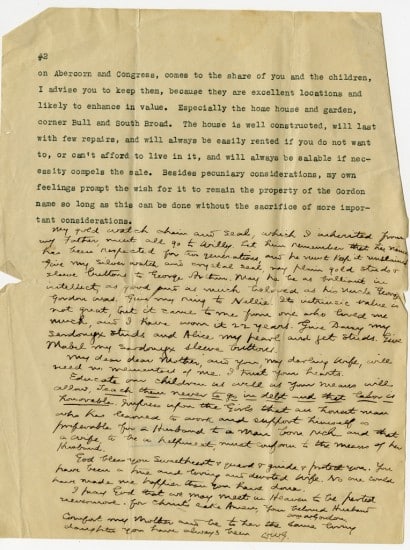 #2
on Abercorn and Congress, comes to the share of you and the children,
I advise you to keep them, because they are excellent locations and
likely to enhance in value. Especially the home house and garden,
corner Bull and South Broad. The house is well constructed, will last
with few repairs, and will always be easily rented if you do not want
to, or can't afford to live in it, and will always be salable if nec-
essity compels the sale. Besides pecuniary considerations, my own
feelings prompt the wish for it to remain the property of the Gordon
name so long as this can be done without the sacrifice of more impor-
tant considerations.
My gold watch chain and seal, which I inherited from
my Father must all go to Willy. Let him remember that his name
has been respected for generations, and he must keep it unstained
Give my silver watch and crystal seal my plain gold studs &
sleeve buttons to George Arthur. May he be as brilliant in
intellect, as good and as much beloved as his Uncle George
Gordon was. Give my ring to Nellie. Its intrinsic value is
not great, but it came to me from one who loved me
much, and I have worn it 22 years. Give Daisy my
sardonyx studs and Alice my pearl and jet studs. Give
Mabel my sardonyx sleeve buttons.
My dear dear Mother, and you my darling wife, will
need no mementoes of me. I trust your hearts.
Educate our children as well as your means will
allow. Teach them never to go in debt and that labor is
honorable. Impress upon the Girls that an honest man
who has learned to work and support himself is
preferable for a Husband to a man born rich and that
a wife to be a helpmeet must conform to the means of her
Husband.
God bless you Sweetheart & guard & guide & protect you. You
have been a true and loving and devoted wife. No one could
have made me happier than you have done.
I pray God that we may meet in Heaven to be parted
nevermore. For Christ's sake Amen. Your beloved Husband
Gordon
Comfort my Mother and be to her the same loving
daughter you have always been